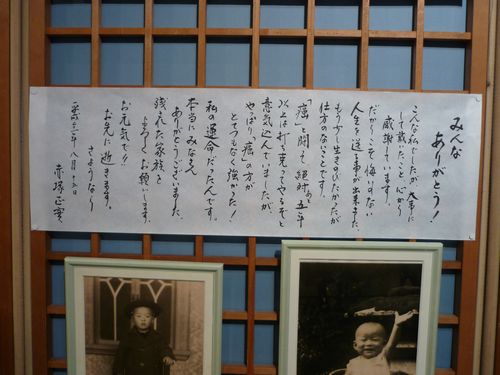 みんな
ありがとう!
こんな私でしたが、大事に
して戴いたこと、心から
感謝しています。
だからこそ悔いのない
人生を送る事が出来ました。
もう少し生きのびたかったが
仕方のないことです
「癌」と闘って絶対あと五年
以上は打ち克ってやるぞと
意気込んでいましたが、
やっぱり癌の方が
とてつもなく強かった!
私の運命だったんです。
本当にみなさん
ありがとうございました。
残された家族を
よろしくお願いします。
お元気で!!
お先に逝きます。
さようなら
八月十五日
赤塚正